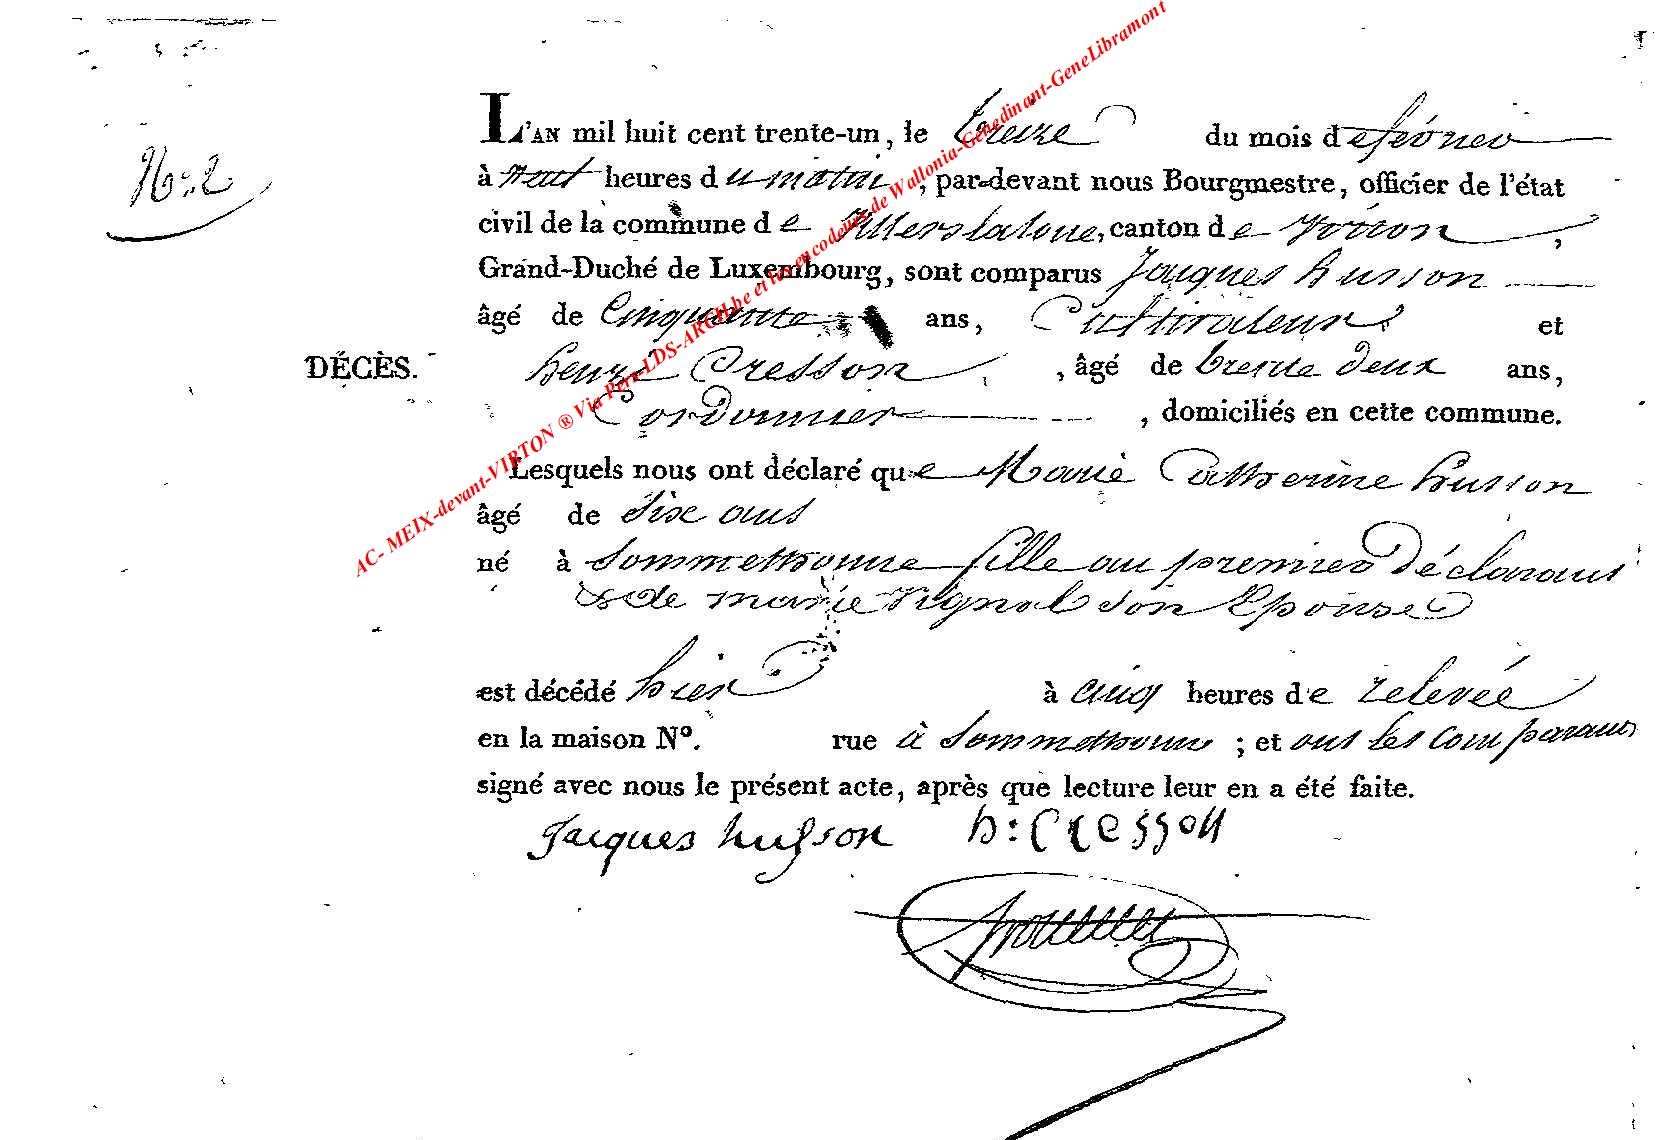 L'AN mil huit cent trente-un, le treize du mois de février
N.o 2
à neuf heures du matin, par-devant nous Bourgmestre, officier de l'état
civil de la commune de Villerslaloue, canton de Virton,
Grand-Duché de Luxembourg, sont comparus Jacques husson
âgé de Cinquante ans, Cultivateur et
DÉCÈS.
henri Cresson, âgé de trente deux ans,
Cordonnier, domiciliés en cette commune.
Lesquels nous ont déclaré que Marie Catherine husson
âgé de Six ans
né à Sommethonne fille au premier Déclarant
& de marie Vignol Son Epouse
est décédé hier à cinq heures de relevée
en la maison N°. rue à Sommethonne ; et ont les comparants
signé avec nous le présent acte, après que lecture leur en a été faite.
Jacques husson h: Cresson
AC- MEIX-devant-VIRTON ® Via Pere-LDS-ARCH.be et les encodeurs de Wallonia-Genedinant-GeneLibramont